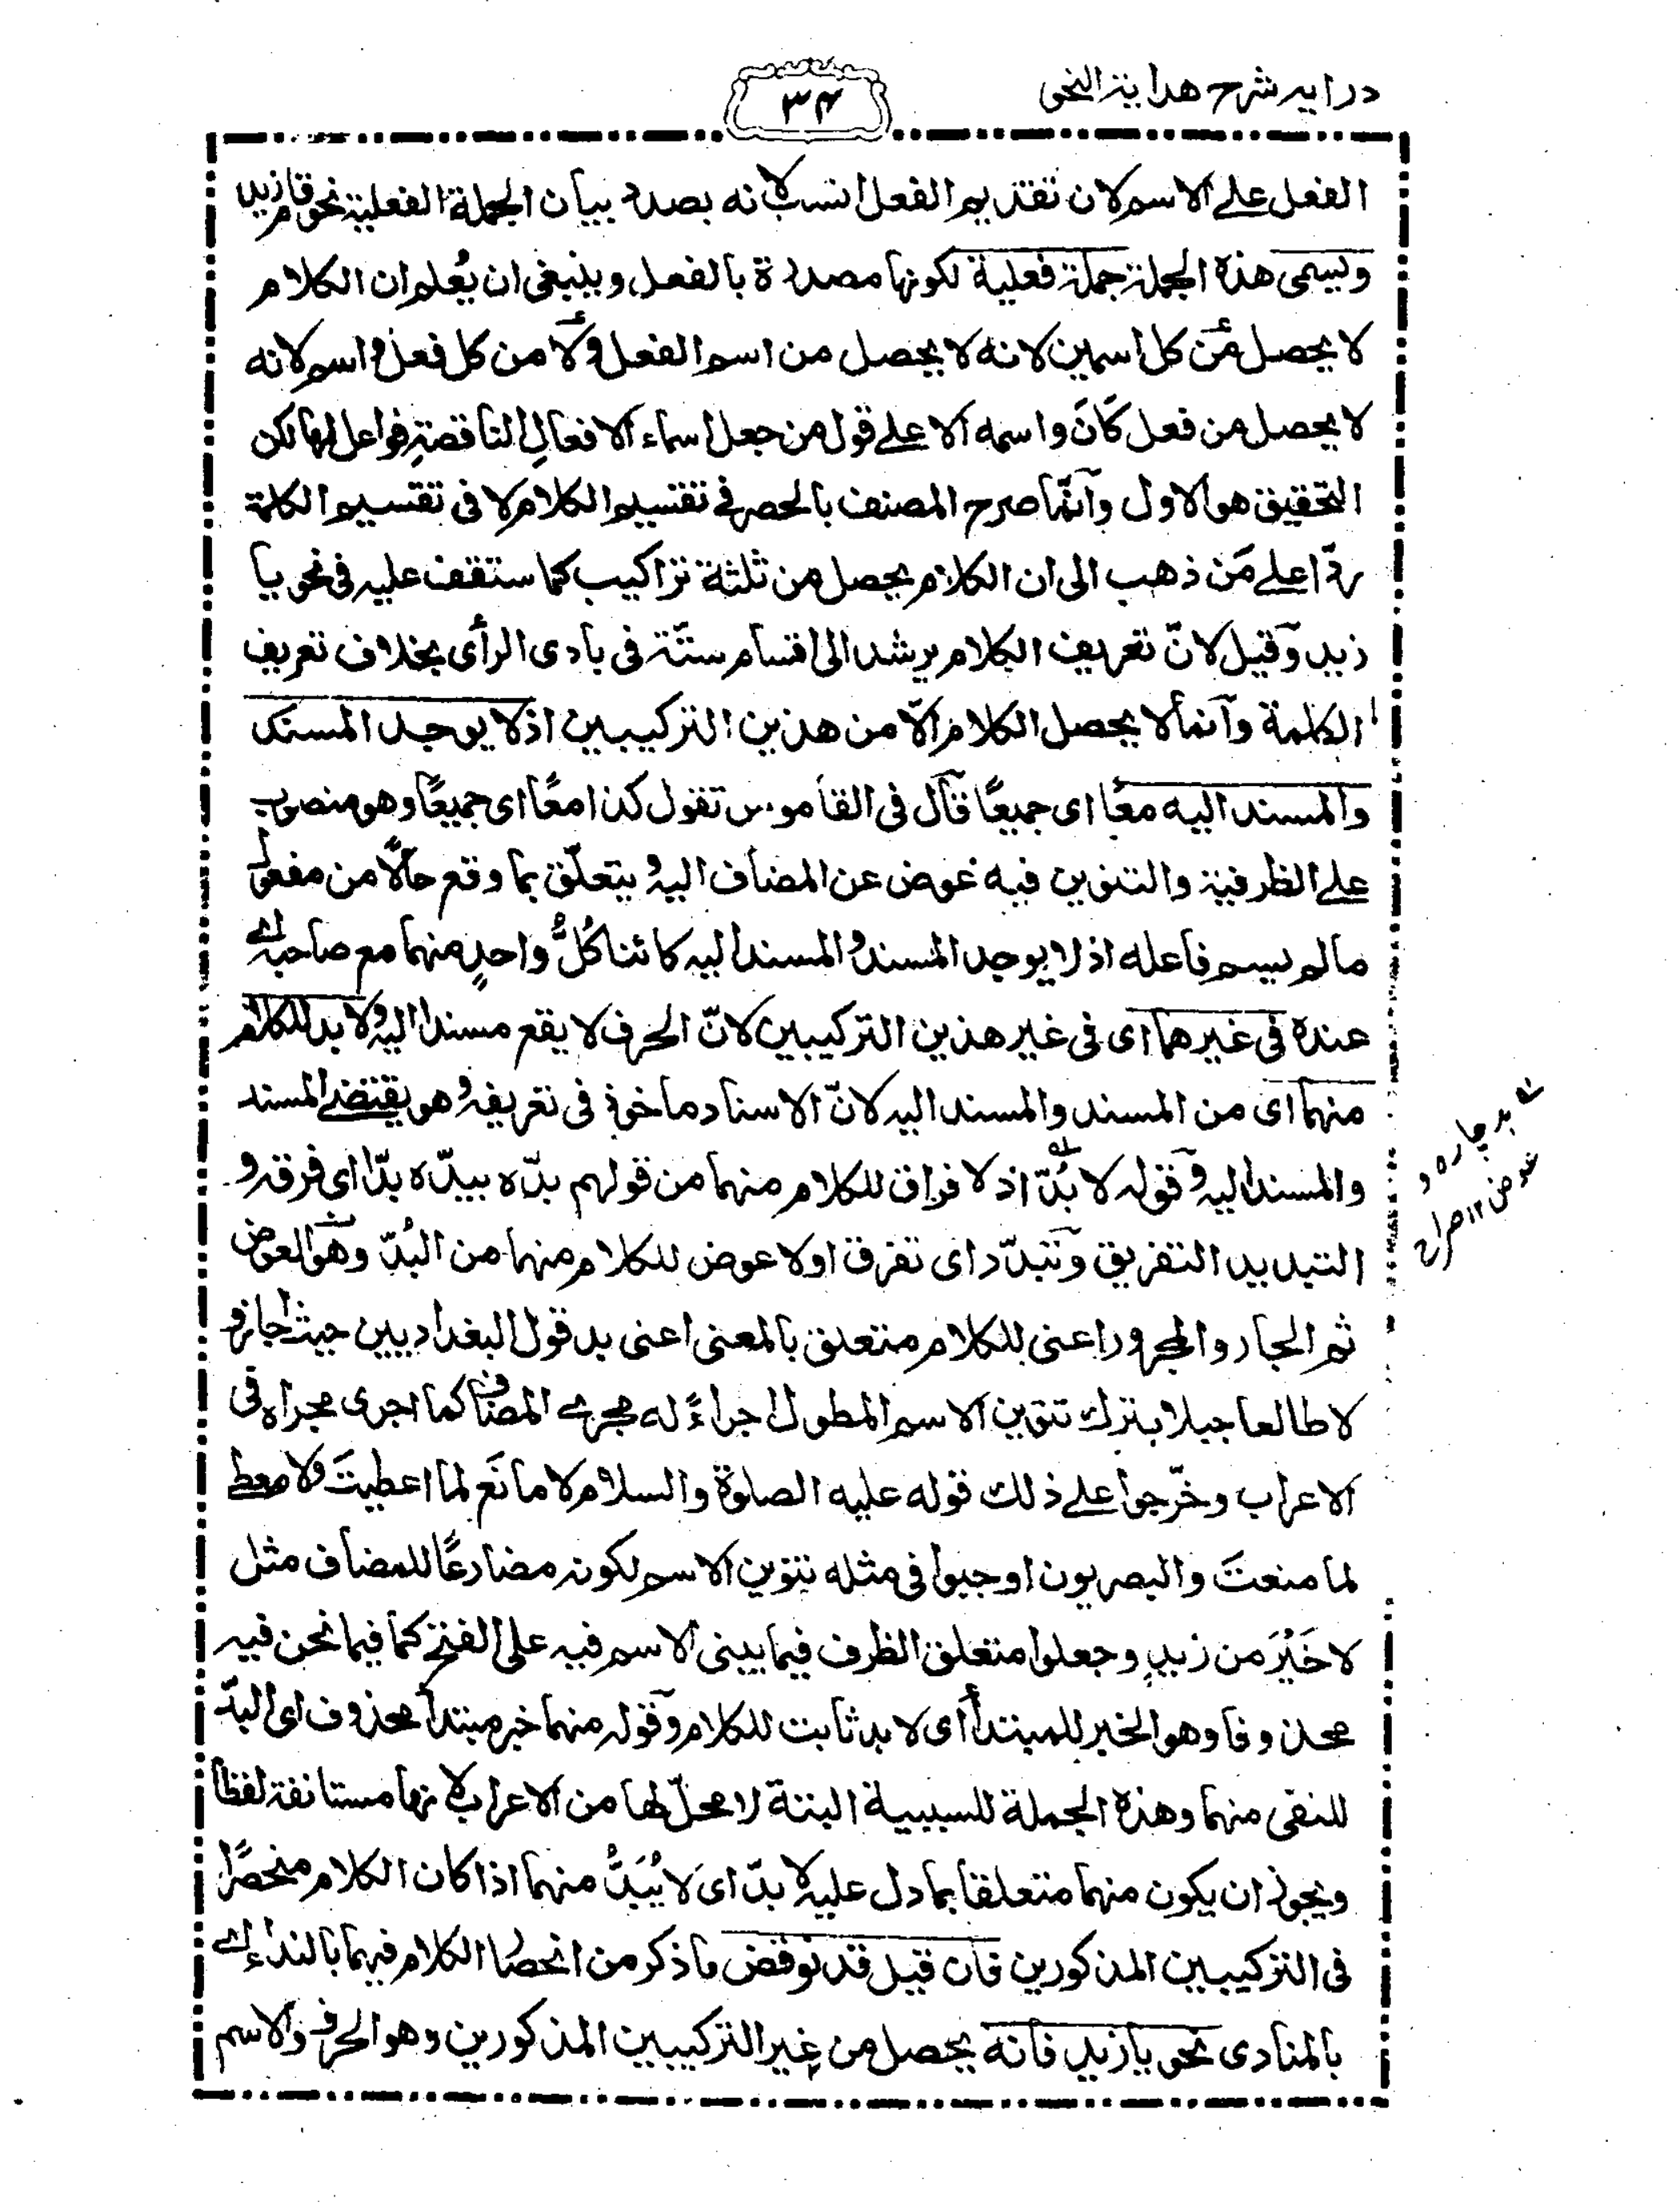 درايه شرح هداية النحو
٣٤
الفعل على الاسم لان تقديم الفعل انسب لانه بصدد بيان الجملة الفعلية نحو قام زيد
ويسمى هذه الجملة جملة فعلية لكونها مصدرة بالفعل وينبغى ان يُعلم ان الكلام
لا يحصل من كل اسمين لانه لا يحصل من اسم الفعل ولا من كل فعل واسم لانه
لا يحصل من فعل كَانَ واسمه الا على قول من جعل اسماء الافعالِ الناقصةِ فواعل لها لكن
التحقيق هو الاول وانّما صرح المصنف بالحصر فى تقسيم الكلام لا فى تقسيم الكلمة
ردّا على مَن ذهب الى ان الكلام يحصل من ثلثة تراكيب كما ستقف عليه فى نحو يا
زيد وقيل لانّ تعريف الكلام يرشد الى اقسام ستّة فى بادى الرأى بخلاف تعريف
الكلمة وانما لا يحصل الكلام الّا من هذين التركيبين اذ لا يوجد المسند
والمسند اليه معًا اى جميعًا قال فى القاموس تقول كذا معًا اى جميعًا وهو منصوب
على الظرفية والتنوين فيه عوض عن المضاف اليه ويتعلّق بما وقع حالًا من مفعول
مالم يسم فاعله اذ لا يوجد المسند والمسند اليه كائنا كُلُّ واحدٍ منهما مع صاحبه اى
عنده فى غيرهما اى فى غير هذين التركيبين لانّ الحرف لا يقع مسندا اليه ولا بد للكلام
منهما اى من المسند والمسند اليه لانّ الاسناد ماخوذ فى تعريفه وهو يقتضى المسند
والمسند اليه وقوله لا بُدّ اذ لا فراق للكلام منهما من قولهم بدّه يبدّه بدّا اى فرقه و
التبديد التفريق وتبدّد اى تفرق او لا عوض للكلام منهما من البُدّ وهو العوض
ثم الجار والمجرور اعنى للكلام متعلق بالمعنى اعنى بد قول البغداديين حيث اجازو
لا طالعا جبلا بترك تنوين الاسم المطول اجراءً له مجرى المضاف كما اجرى مجراه فى
الاعراب وخرّجوا على ذلك قوله عليه الصلوة والسلام لا مانَع لما اعطيتَ ولا معطى
لما منعتَ والبصريون اوجبوا فى مثله تنوين الاسم لكونه مضارعًا للمضاف مثل
لا خَيْرَ من زيدٍ وجعلوا متعلق الظرف فيما يبنى الاسم فيه على الفتح كما فيما نحن فيه
محذوفا وهو الخبر للمبتدأ اى لا بد ثابت للكلام وقوله منهما خبر مبتدأ محذوف اى البدّ
للنفى منهما وهذه الجملة للسببية البتة لا محلّ لها من الاعراب لانها مستانفة لفظا
ويجوز ان يكون منهما متعلقا بما دل عليه لا بدّ اى لا يُبَدُّ منهما اذا كان الكلام منحصرًا
فى التركيبين المذكورين فان قيل قد نوقض ما ذكر من انحصار الكلام فيهما بالنداء اى
بالمنادى نحو يا زيد فانه يحصل من غير التركيبين المذكورين وهو الحرف والاسم
بد چاره و
عوض ١٢ صراح